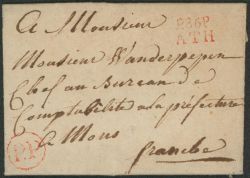 A Monsieur
P86P
ATH
Monsieur Vanderpepen
Chef au Bureau de
Comptabilité a la préfecture
a Mons
P.P.
franche